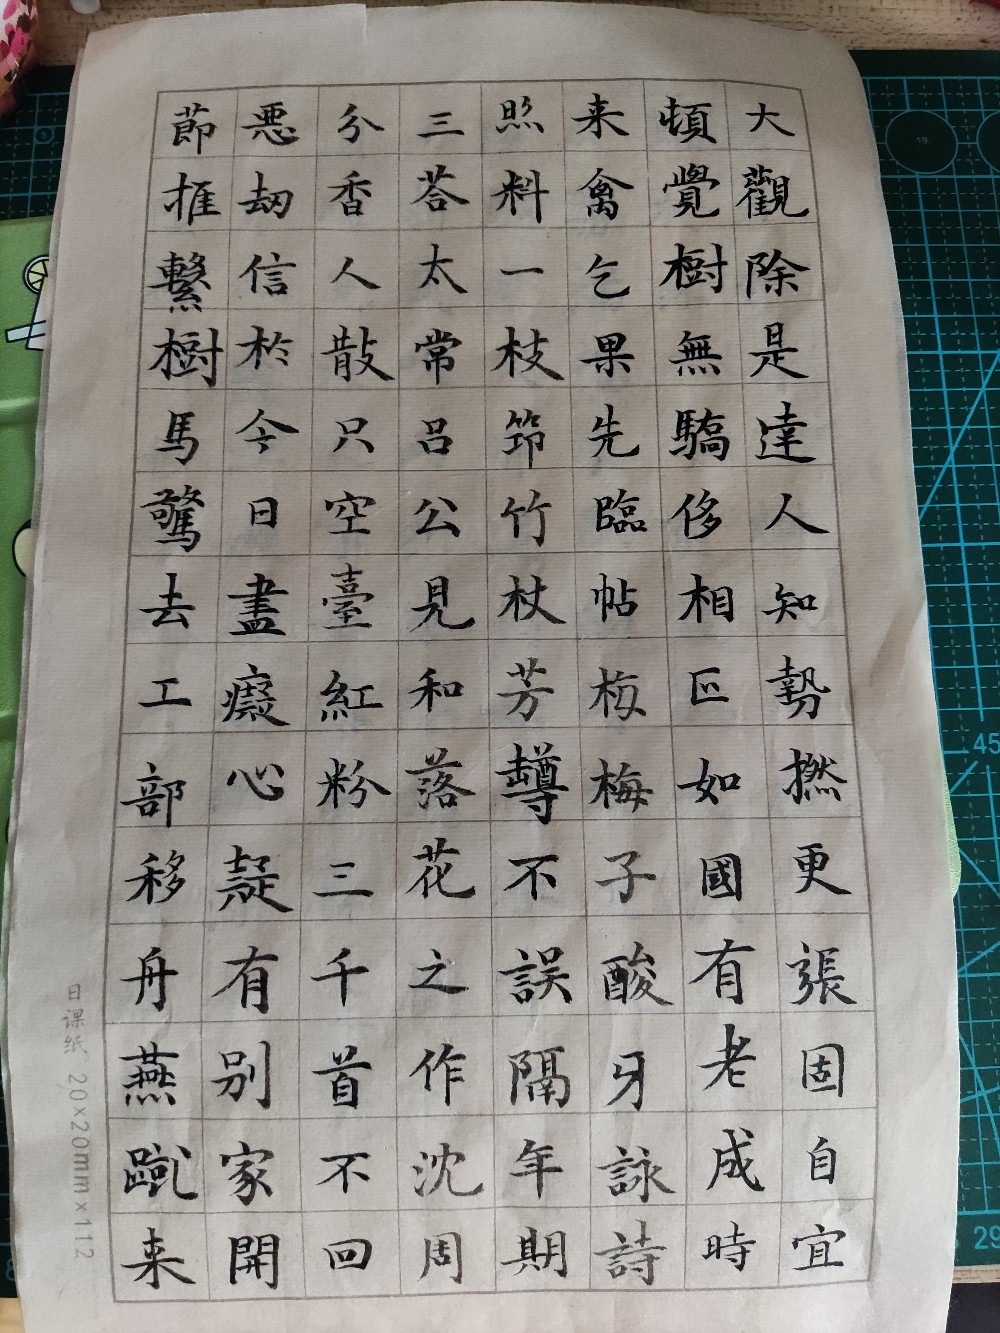 大觀除是達人知勢撚更張固自宜
頓覺樹無驕侈相如國有老成時
来禽乞果先臨帖梅梅子酸牙詠詩
照料一枝筇竹杖芳罇不誤隔年期
三荅太常呂公見和落花之作沈周
分香人散只空臺紅粉三千首不回
悪劫信於今日盡癡心疑有別家開
節推繫樹馬驚去工部移舟燕蹴来
日课纸 20×20mm×112
45
29